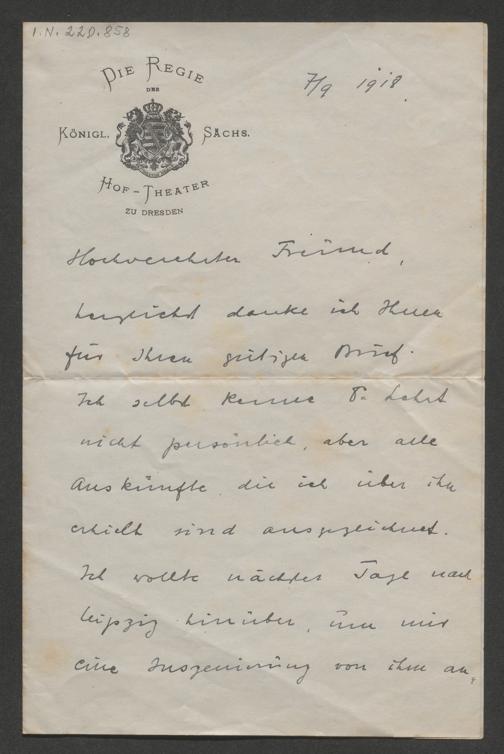 I.N. 220.858
DIE REGIE
DES
KÖNIGL. SÄCHS.
HOF-THEATER
ZU DRESDEN
7/9 1918.
Hochverehrter Freund,
herzlichst danke ich Ihnen
für Ihren gütigen Brief.
Ich selbst kenne D. Lehrt
nicht persönlich, aber alle
Auskünfte, die ich über ihn
erhielt sind ausgezeichnet.
Ich wollte nächster Tage nach
Leipzig hinüber, um mir
eine Inszenierung von ihm an